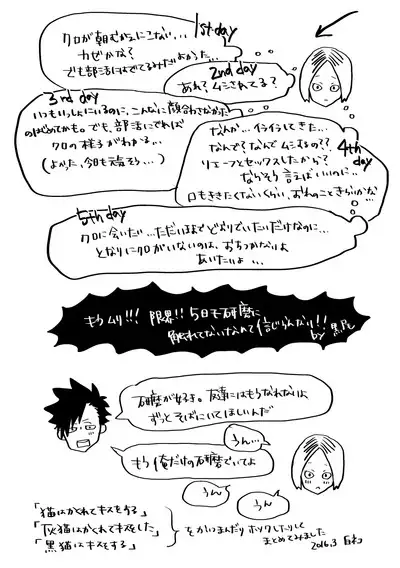 1st day
クロが朝むかえにこない、、、
カゼかな?
でも部活にはでてるみたいよかった…
2nd day
あれ?ムシされてる?
3rd day
いつもいっしょにいるのに、こんなに顔合わさなかった
のはじめてかも。でも、部活にでれば
クロの様子がわかる…
(よかった、今日も元気そう…)
4th day
なんか…イライラしてきた…
なんで?なんでムシするの??
リエーフとセックスしたから?
ならそう言えばいいのに…
口もききたくないくらい、おれのこときらいかな…
5th day
クロに会いたい…ただいままでどおりでいたいだけなのに…
となりにクロがいないのは、おちつかないよ
あいたいよ…
もうムリ!!!限界!!5日も研磨に
触れてないなんて信じらんない!!
by 黒尾
研磨が好き。友達にはもうなれないよ
ずっとそばにいてほしいんだ
うん…
もう俺だけの研磨でいてよ
うん
うん
「猫はかくれてキスをする」
「灰猫はかくれてキスをした」
「黒猫はキスをする」
をかいつまんだりボツにしたりして
まとめてみました
2016.3